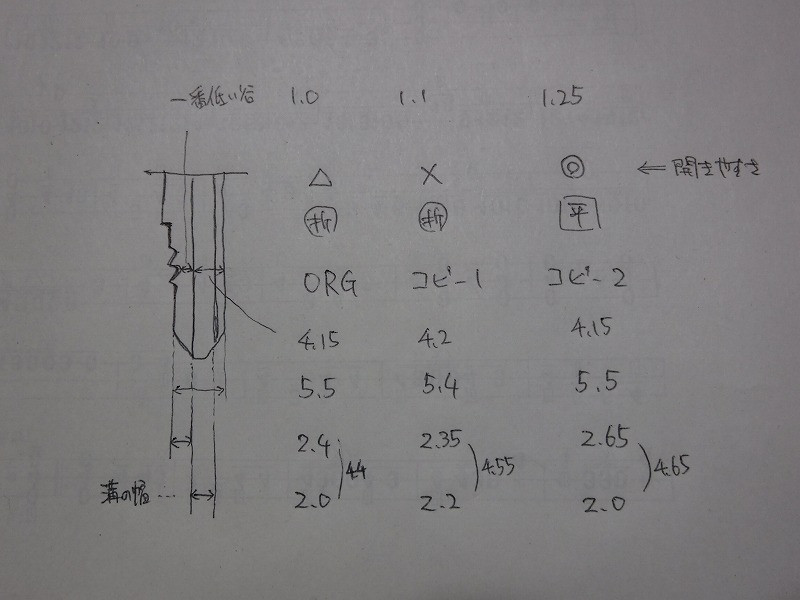 一番低い谷 1.0 1.1 1.25
△ × ◎ ⇐ 開きやすさ
折 折 平
ORG コピー1 コピー2
4.15 4.2 4.15
5.5 5.4 5.5
2.4 2.35 2.65
4.4 4.55 4.65
溝の幅… 2.0 2.2 2.0